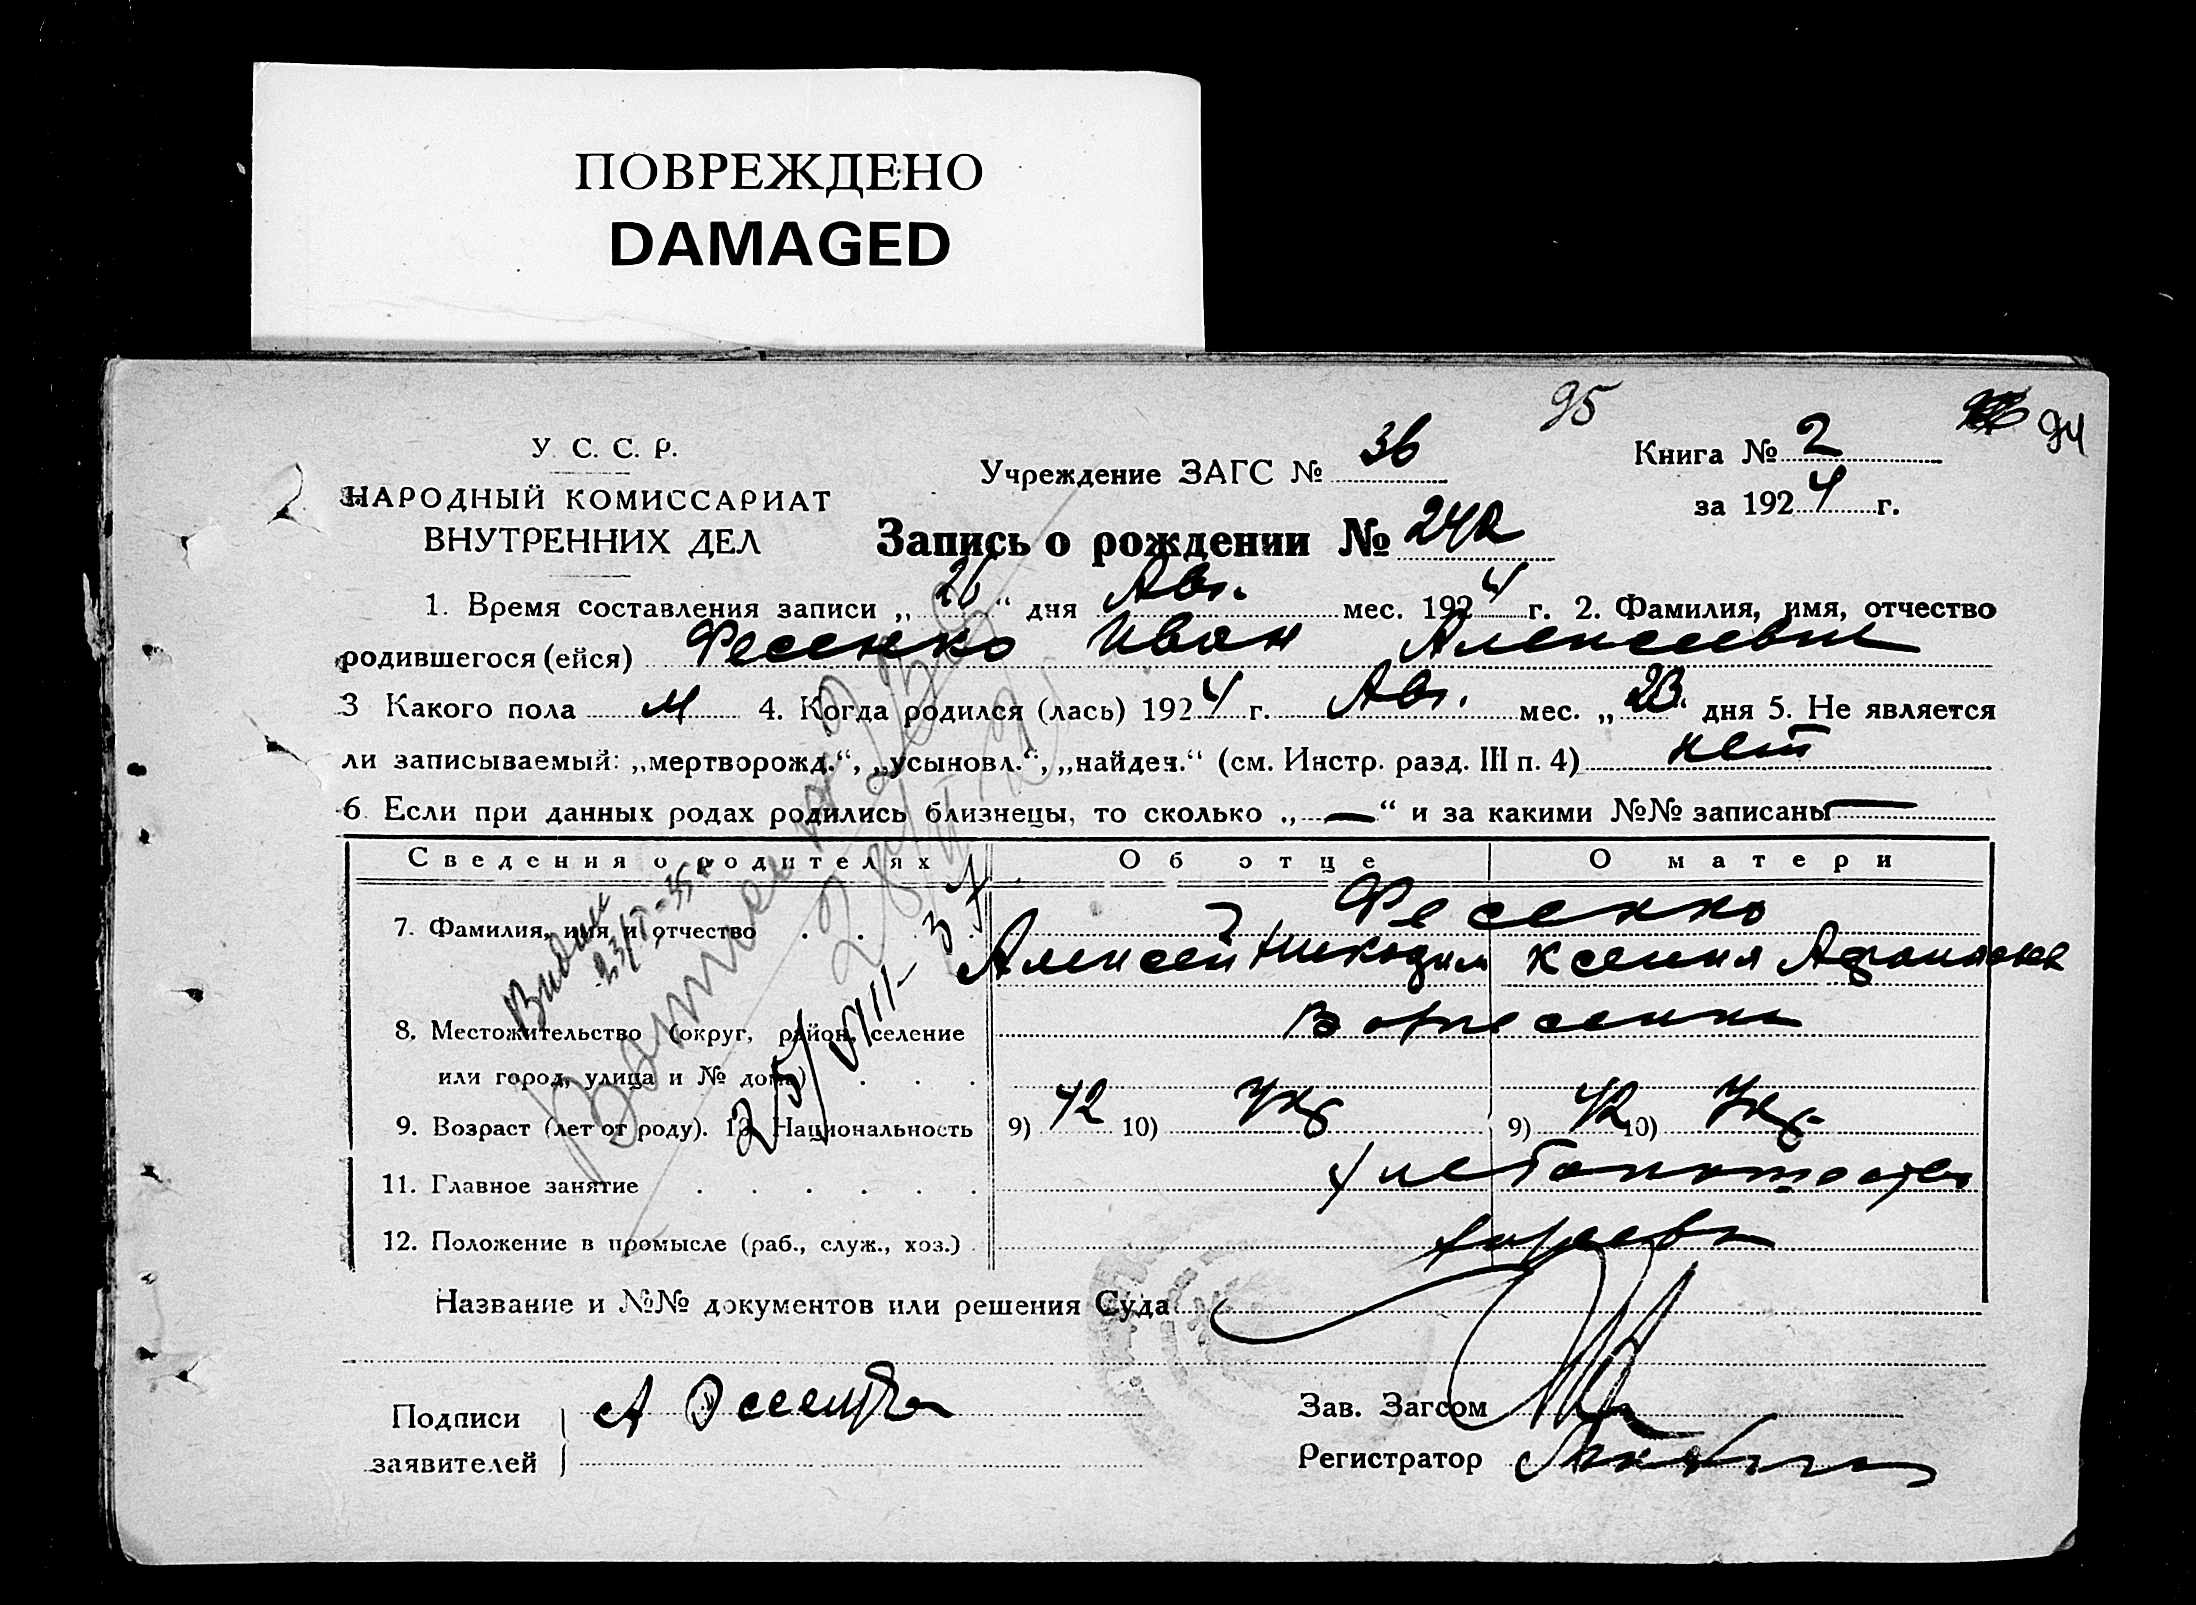 ПОВРЕЖДЕНО
DAMAGED
95
94
У. С. С. Р.
НАРОДНЫЙ КОМИССАРИАТ
ВНУТРЕННИХ ДЕЛ
Учреждение ЗАГС № 36
Книга № 2
за 1924 г.
Запись о рождении № 242
1. Время составления записи „26“ дня Авг. мес. 1924 г. 2. Фамилия, имя, отчество
родившегося (ейся) Фесенко Иван Алексеевич
3 Какого пола м 4. Когда родился (лась) 1924 г. Авг. мес. „23“ дня 5. Не является
ли записываемый: „мертворожд.“, „усыновл.“, „найден.“ (см. Инстр. разд. III п. 4) нет
6. Если при данных родах родились близнецы, то сколько „—“ и за какими №№ записаны —
Сведения о родителях Об отце О матери
7. Фамилия, имя и отчество Фесенко
Алексей Никодим Ксения Афанасьев
8. Местожительство (округ, район, селение
или город, улица и № дома)
9. Возраст (лет от роду). 10. Национальность 9) 42 10) Укр 9) 42 10) Укр.
11. Главное занятие
12. Положение в промысле (раб., служ., хоз.)
Название и №№ документов или решения Суда
Подписи
заявителей
Зав. Загсом
Регистратор